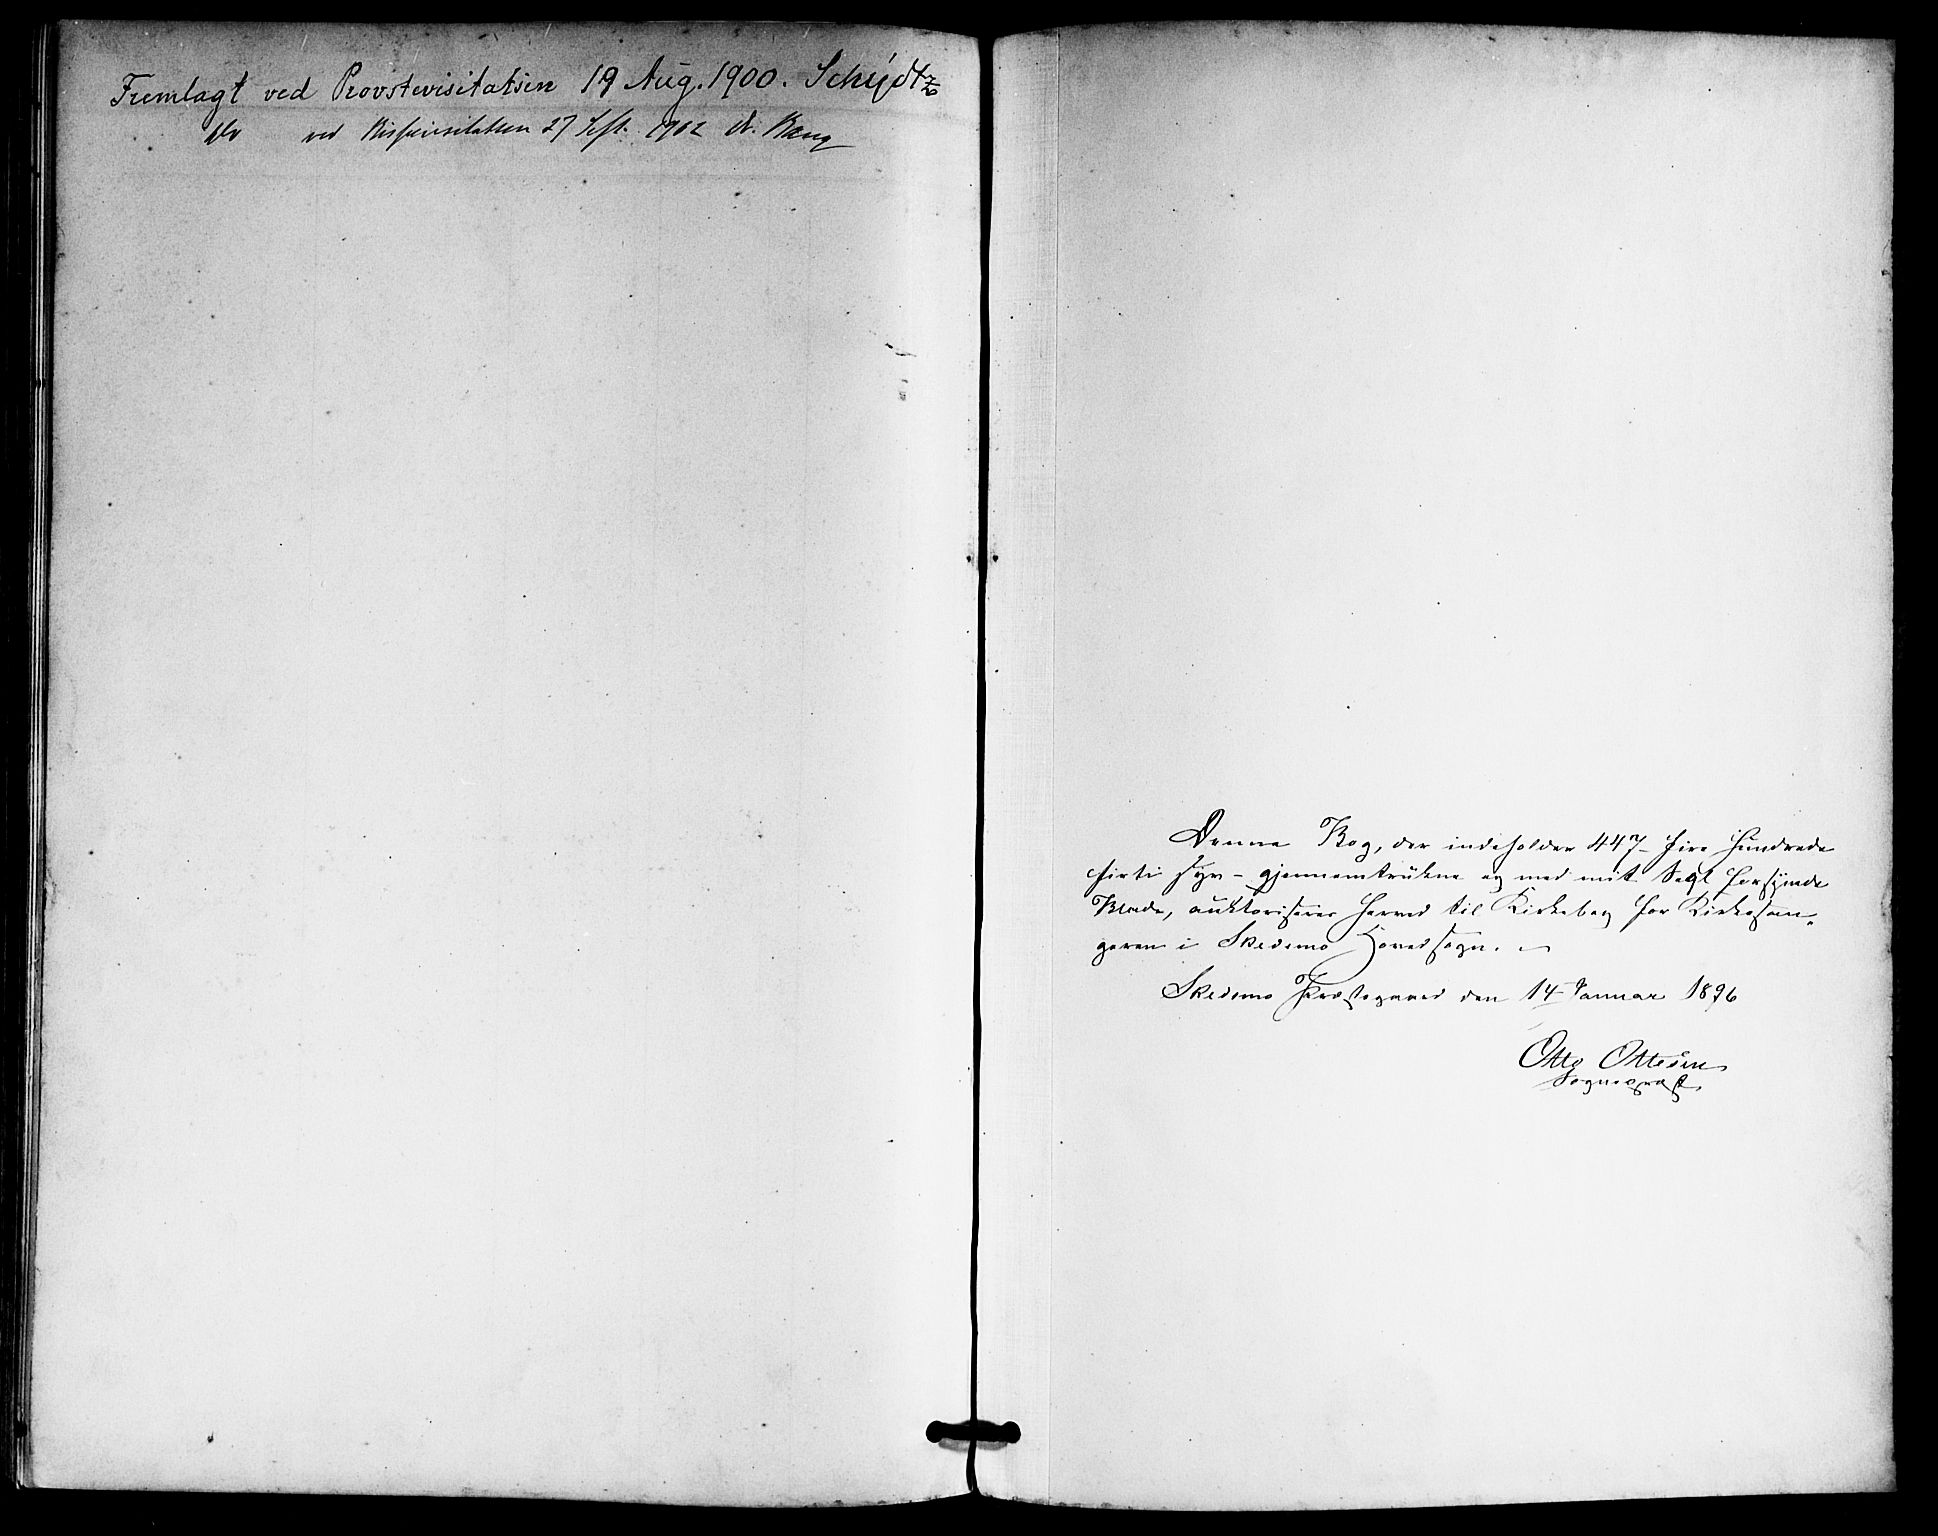 Fremlagt ved Provstevisitatsen 19 Aug. 1900. Schydtz
do ved Bispevisitatsen 27 Sept. 1902 A. Bang
Denne Bog, der indeholder 447 - fire Hundrede
firti syv - gjennemtrukne og med mit Segl forsynede
Blade, auktoriseres herved til Kirkebog for Kirkesan-
geren i Skedsmo Hovedsogn. -
Skedsmo Præstegaard den 14 Januar 1896
Otto Ottesen
Sognepræst